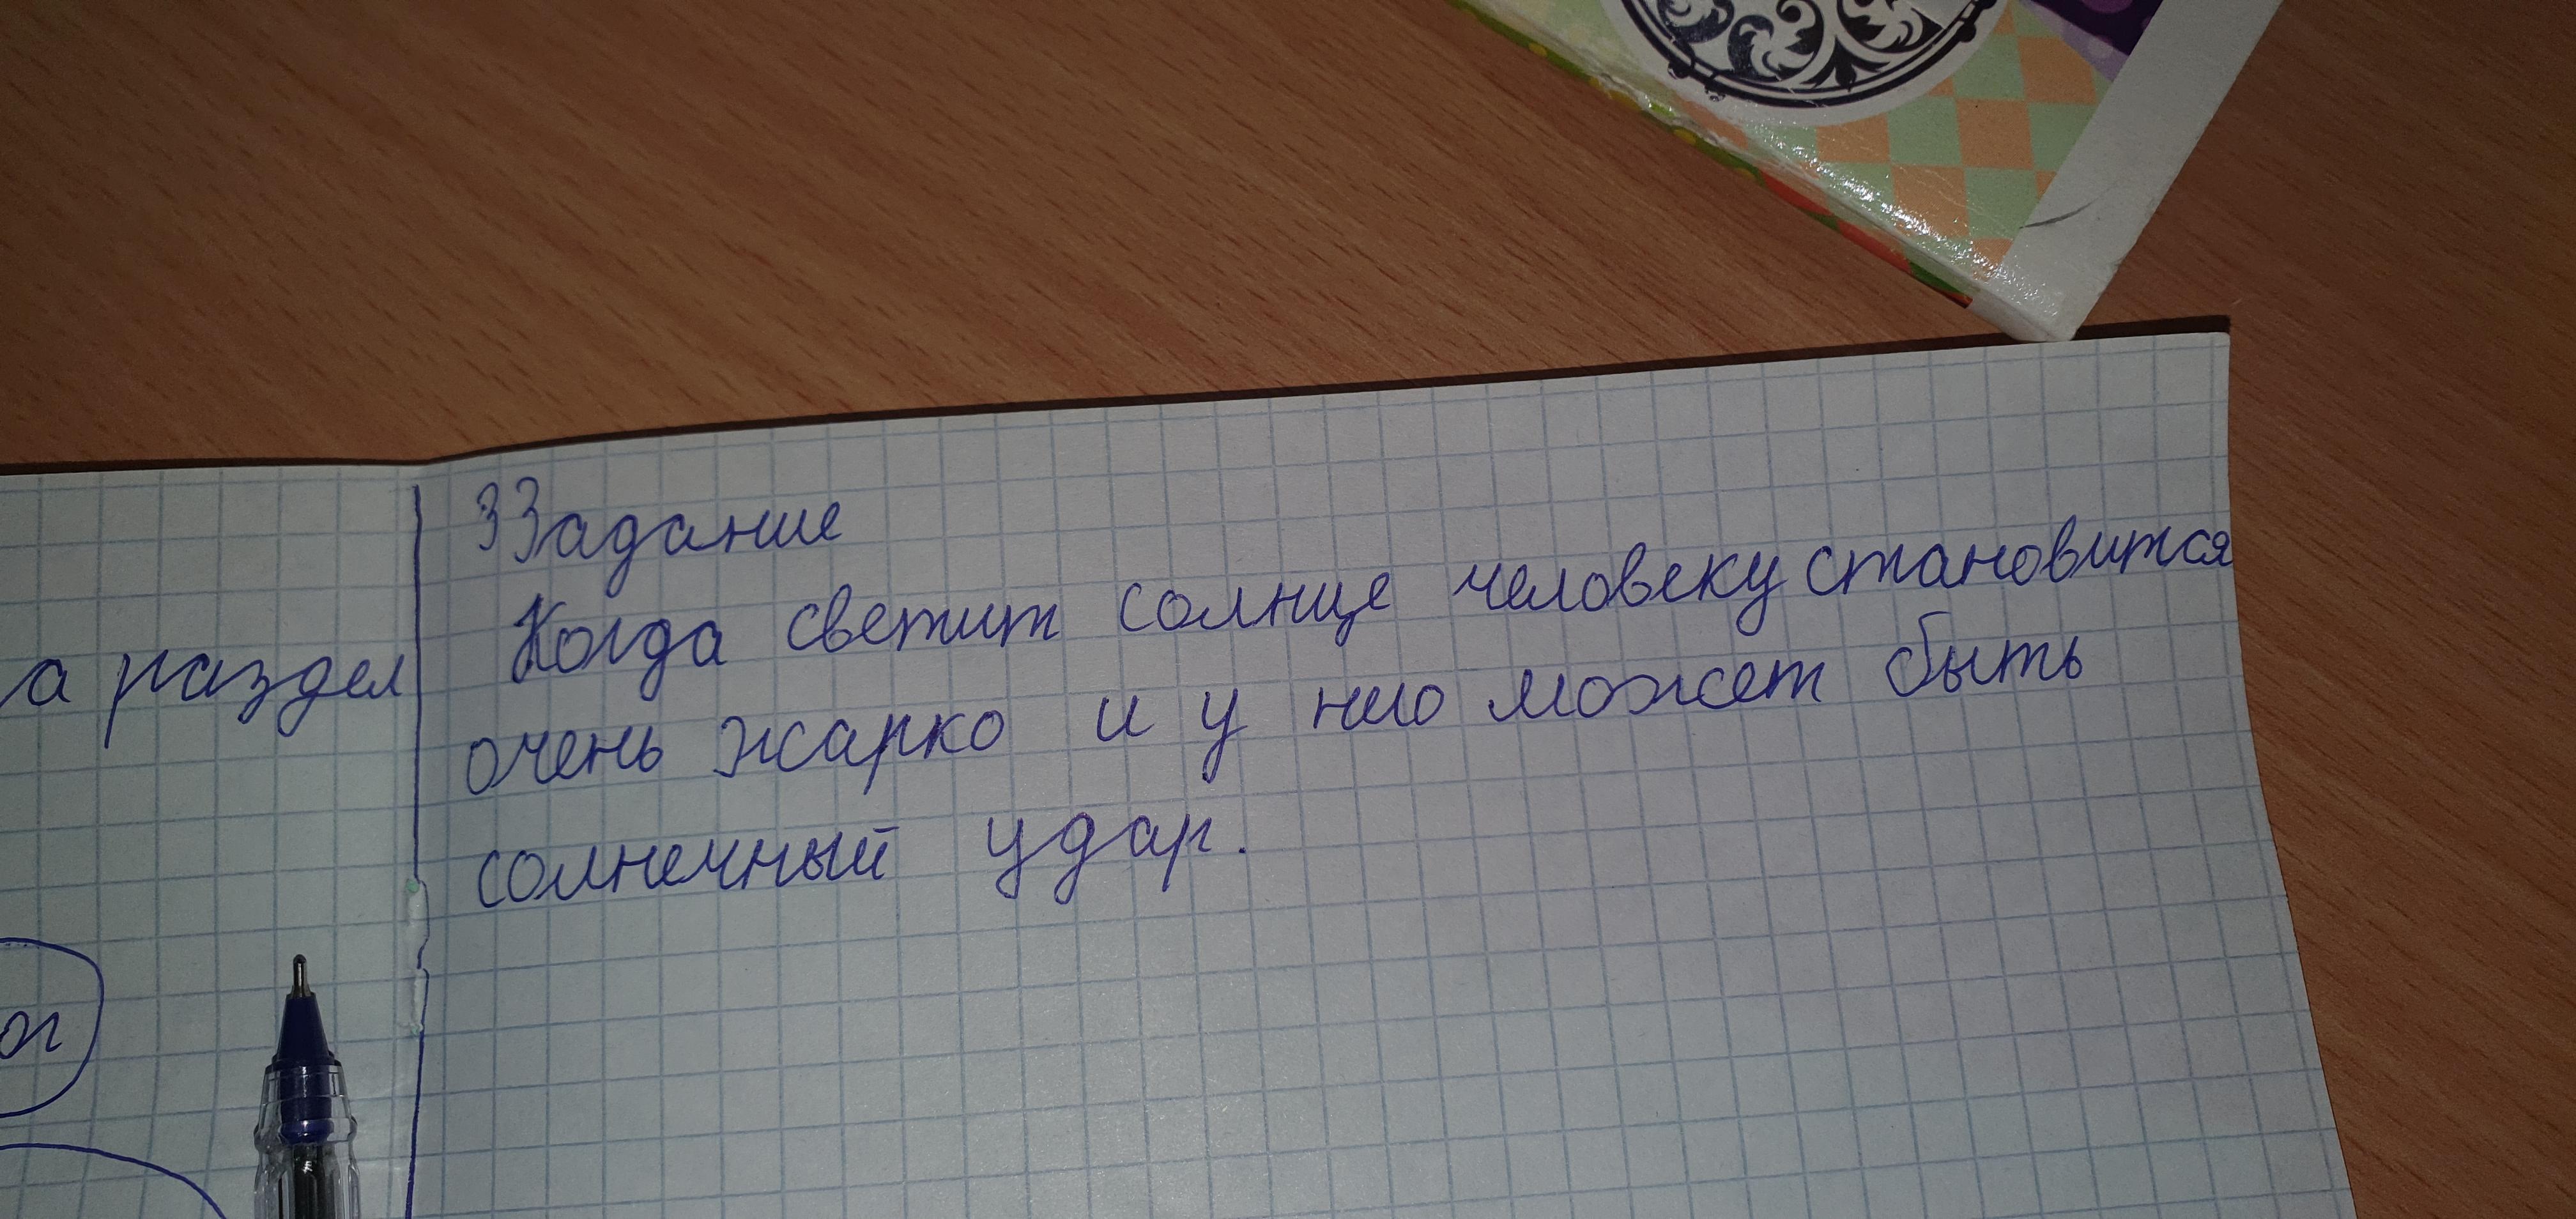 3 Задание
Когда светит солнце человеку становится
очень жарко и у него может быть
солнечный удар.
а раздел
ог